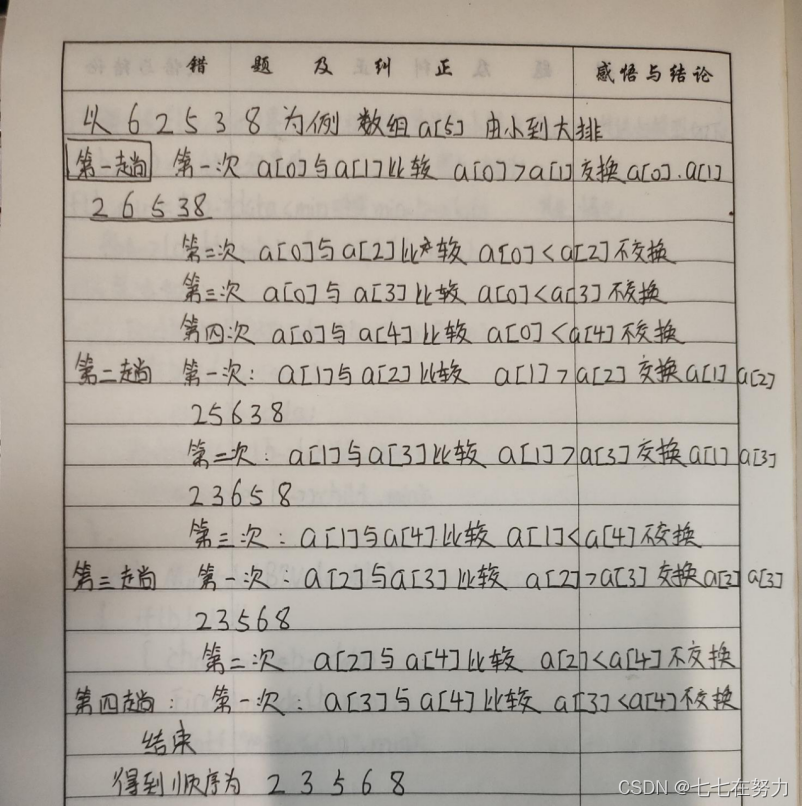 错 题 及 纠 正 感悟与结论
以 6 2 5 3 8 为例 数组 a[5] 由小到大排
第一趟 第一次 a[0]与a[1]比较 a[0]>a[1] 交换a[0].a[1]
2 6 5 3 8
第二次 a[0]与a[2]比较 a[0]<a[2]不交换
第三次 a[0]与a[3]比较 a[0]<a[3]不交换
第四次 a[0]与a[4]比较 a[0]<a[4]不交换
第二趟 第一次: a[1]与a[2]比较 a[1]>a[2] 交换a[1] a[2]
2 5 6 3 8
第二次: a[1]与a[3]比较 a[1]>a[3]交换a[1] a[3]
2 3 6 5 8
第三次: a[1]与a[4]比较 a[1]<a[4]不交换
第三趟 第一次: a[2]与a[3]比较 a[2]>a[3] 交换a[2] a[3]
2 3 5 6 8
第二次 a[2]与a[4]比较 a[2]<a[4]不交换
第四趟: 第一次: a[3]与a[4]比较 a[3]<a[4]不交换
结束
得到顺序为 2 3 5 6 8
CSDN @七七在努力